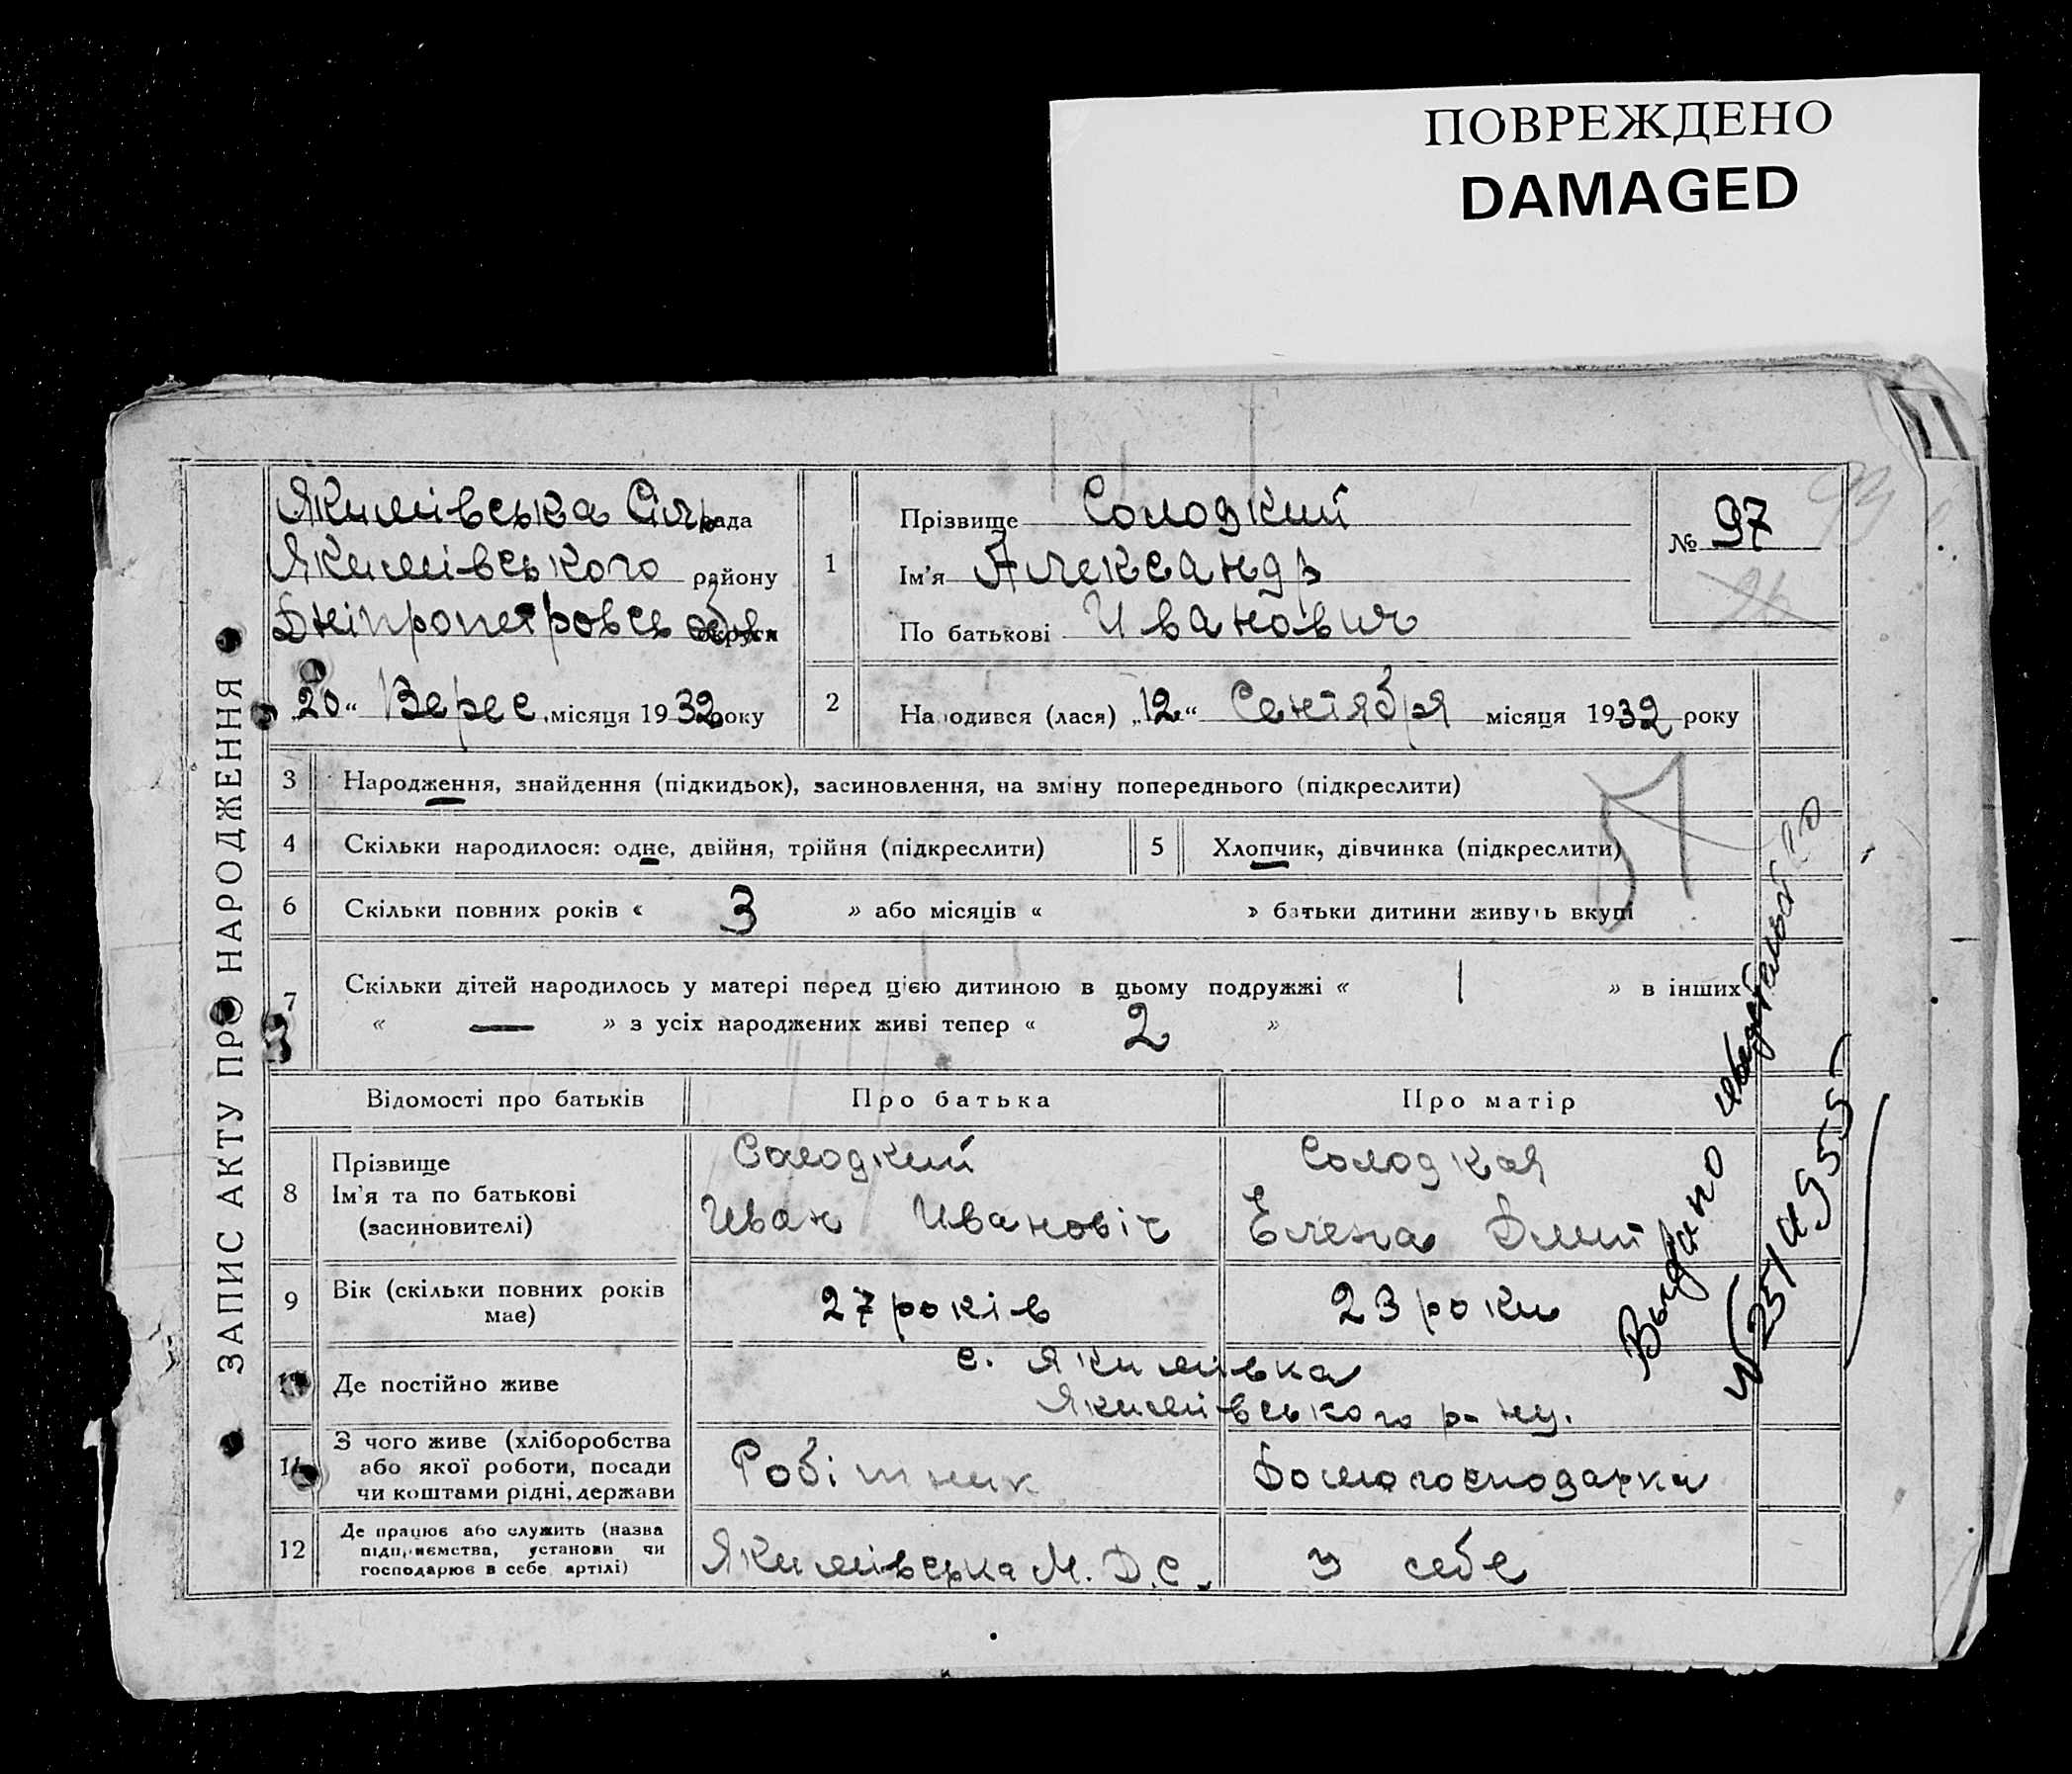 ПОВРЕЖДЕНО
DAMAGED
ЗАПИС АКТУ ПРО НАРОДЖЕННЯ
Якимівська Сільрада
Якимівського району
Дніпропетровсь обл округи
„20“ Верес. місяця 1932 року
1
Прізвище Солодкий
Ім'я Александр
По батькові Иванович
№ 97
2 Народився (лася) „12“ Сентября місяця 1932 року
3 Народження, знайдення (підкидьок), засиновлення, на зміну попереднього (підкреслити)
4 Скільки народилося: одне, двійня, трійня (підкреслити) 5 Хлопчик, дівчинка (підкреслити)
6 Скільки повних років « 3 » або місяців « » батьки дитини живуть вкупі
7 Скільки дітей народилось у матері перед цією дитиною в цьому подружжі « 1 » в інших
« — » з усіх народжених живі тепер « 2 »
Відомості про батьків Про батька Про матір
8 Прізвище
Ім'я та по батькові
(засиновителі)
Солодкий
Иван Ивановіч
Солодкая
Елена Дмит
9 Вік (скільки повних років має) 27 років 23 роки
10 Де постійно живе
с. Якимівка
Якимівського р-ну.
11 З чого живе (хліборобства
або якої роботи, посади
чи коштами рідні, держави
Робітник Домогосподарка
12 Де працює або служить (назва
підприємства, установи чи
господарює в себе артілі)
Якимівська М.Д.С. У себе
Выдано
1955